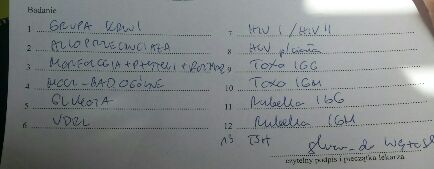 Badanie
1 GRUPA KRWI
2 ALLOPRZECIWCIAŁA
3 MORFOLOGIA + PŁYTKI + ROZMAZ
4 MOCZ - BAD OGÓLNE
5 GLUKOZA
6 VDRL
7 HIV I / HIV II
8 HCV
9 Toxo IGG
10 Toxo IGM
11 Rubella IGG
12 Rubella IGM
13 TSH
czytelny podpis i pieczątka lekarza